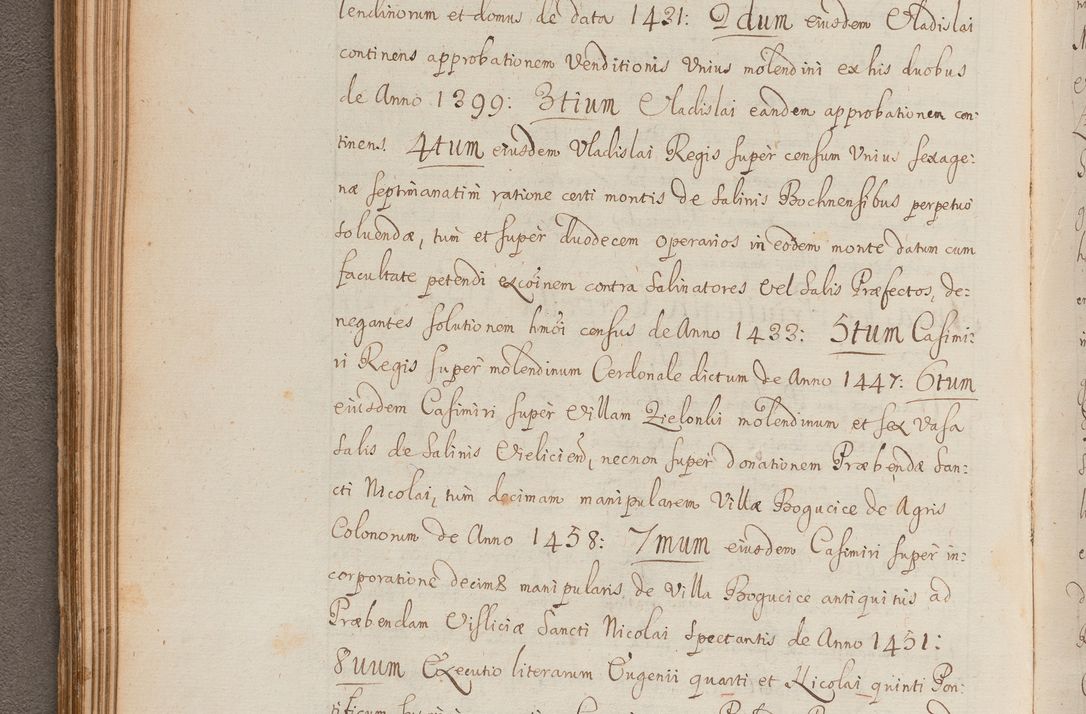 lendinorum et domus de data 1421: 2dum eiusdem Vladislai
continens approbationem Venditionis Unius molendini ex his duobus
de Anno 1399: 3tium Vladislai eandem approbationem con:
tinens. 4tum eiusdem Vladislai Regis super censum Unius sexage:
næ septimanatim ratione certi montis de Salinis Bochnensibus perpetuo
solvendæ, tum et super duodecem operarios in eodem monte datum cum
facultate petendi excoinem contra Salinatores vel Salis Præfectos, de:
negantes solutionem hmoi census de Anno 1433: 5tum Casimi:
ri Regis super molendinum Cerdonale dictum de Anno 1447: 6tum
eiusdem Casimiri super Villam Zielonki molendinum et sex Vasa
Salis de Salinis Vielicien, necnon super donationem Præbendæ San:
cti Nicolai, tum decimam manipularem Villæ Bogucice de Agris
Colonorum de Anno 1458: 7mum eiusdem Casimiri super in:
corporatione decimæ manipularis de Villa Bogucice antiquitus ad
Præbendam Vissliciæ Sancti Nicolai spectantis de Anno 1451:
8vum Executio literarum Eugenii quarti et Nicolai quinti Pon: